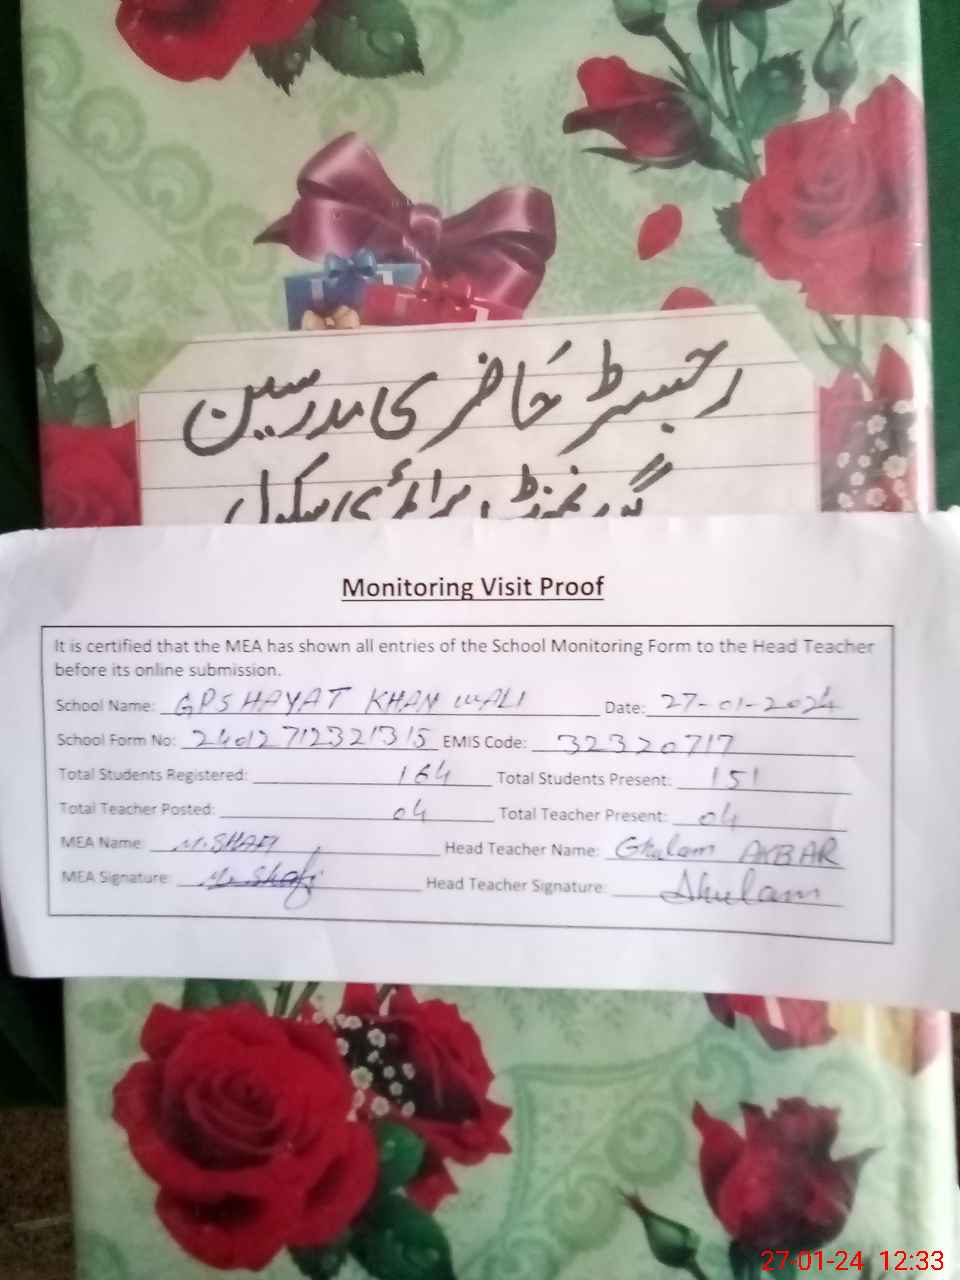 رجسٹر حاضری مدرسین
گورنمنٹ پرائمری سکول
Monitoring Visit Proof
It is certified that the MEA has shown all entries of the School Monitoring Form to the Head Teacher
before its online submission.
School Name: GPS HAYAT KHAN WALI Date: 27-01-2024
School Form No: 24012712321315 EMIS Code: 32320717
Total Students Registered: 164 Total Students Present: 151
Total Teacher Posted: 04 Total Teacher Present: 04
MEA Name: M.SHAFI Head Teacher Name: Ghulam AKBAR
MEA Signature: M. Shafi Head Teacher Signature: Ghulam
27-01-24 12:33